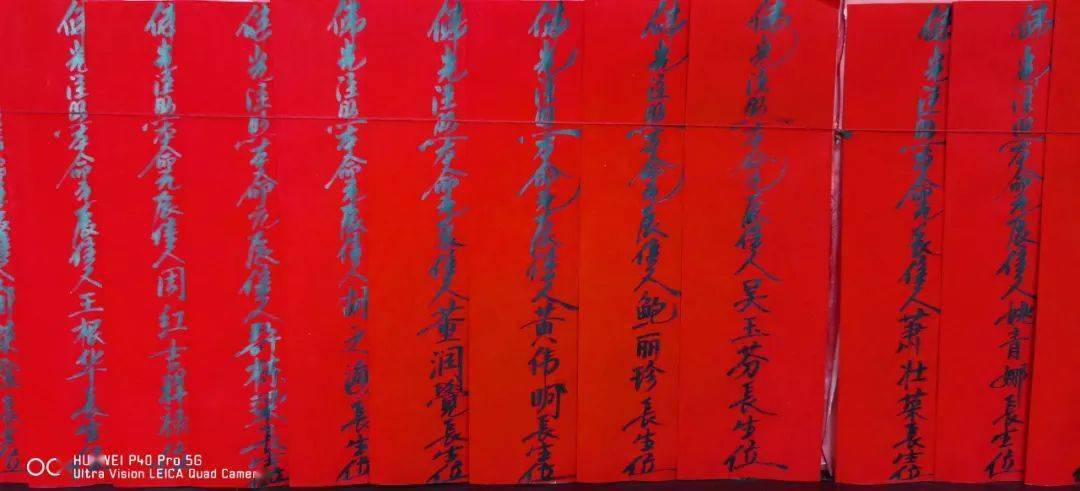 佛光注照本命元辰信人姚青娜長生位
佛光注照本命元辰信人萧壮葉長生位
佛光注照本命元辰信人吴玉芬長生位
佛光注照本命元辰信人鲍丽珍長生位
佛光注照本命元辰信人黄伟啊長生位
佛光注照本命元辰信人董润覽長生位
佛光注照本命元辰信人胡之海長生位
佛光注照本命元辰信人栋梁長生位
佛光注照本命元辰信人周红吉祥禄位
佛光注照本命元辰信人王根华長生位
HUAWEI P40 Pro 5G
Ultra Vision LEICA Quad Camera